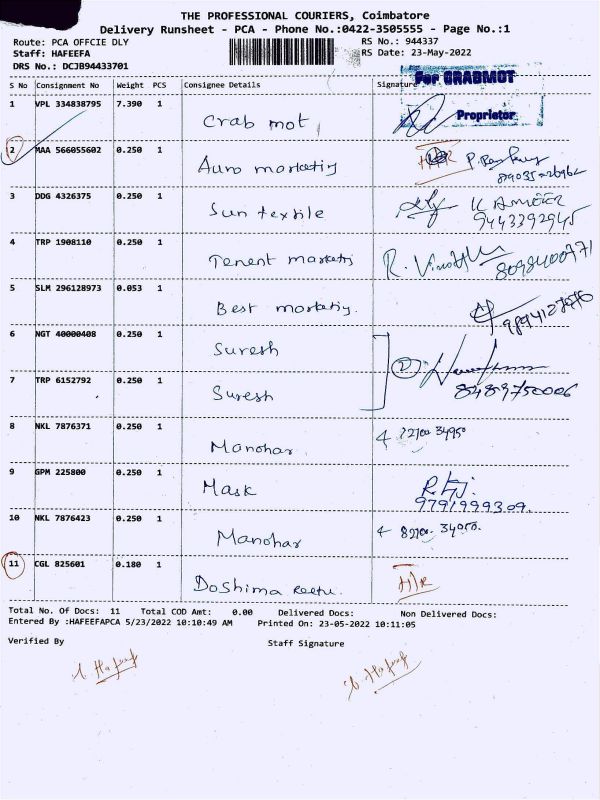 THE PROFESSIONAL COURIERS, Coimbatore
Delivery Runsheet - PCA - Phone No.:0422-3505555 - Page No.:1
Route: PCA OFFCIE DLY RS No.: 944337
Staff: HAFEEFA RS Date: 23-May-2022
DRS No.: DCJB94433701
For GRABMOT
S No Consignment No Weight PCS Consignee Details Signature
1 VPL 334838795 7.390 1 Crab mot
Proprietor
2 MAA 566055602 0.250 1 Auro marketing
3 DDG 4326375 0.250 1 Sun textile K AMEER
9443392945
4 TRP 1908110 0.250 1 Tenent marketing R. 8098400771
5 SLM 296128973 0.053 1 Best marketing.
6 NGT 40000408 0.250 1 Suresh 2
7 TRP 6152792 0.250 1 Suresh 8489750006
8 NKL 7876371 0.250 1 Manohar 34950
9 GPM 225800 0.250 1 Mask
9791999309.
10 NKL 7876423 0.250 1 Manohar
11 CGL 825601 0.180 1 Doshima
Total No. Of Docs: 11 Total COD Amt: 0.00 Delivered Docs: Non Delivered Docs:
Entered By :HAFEEFAPCA 5/23/2022 10:10:49 AM Printed On: 23-05-2022 10:11:05
Verified By Staff Signature